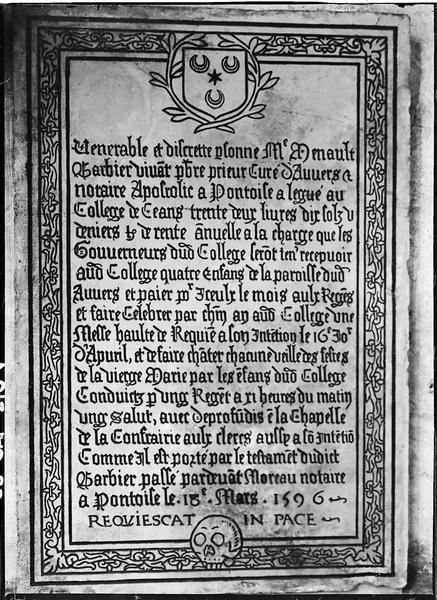 Venerable et discrette psonne Me Menault
Barbier vivāt pbre prieur Cure d'Auvers &
notaire Apostolic a Pontoise a legue au
College de Ceans trente deux livres dix solz v
deniers tz de rente ānuelle a la charge que les
Gouverneurs dud College serōt tenꝰ recepvoir
aud College quatre enfans de la paroisse dud
Auvers et paier pr Iceulx le mois aulx Regēs
et faire Celebrer par chūn an aud College vne
Messe haulte de Requiē a son Intētion le 16e Ior
d'Apuril, et de faire chāter chacune veille des festes
de la vierge Marie par les ēfans dud College
Conduictz p vng Regēt a xi heures du matin
vng Salut, avec Deprofūdis ē la Chapelle
de la Confrairie aulx clercs aussy a sō Intētiō
Comme Il est porté par le testament dudict
Barbier passé pardevāt Moreau notaire
a Pontoise le .18e. Mars . 1596
REQVIESCAT IN PACE